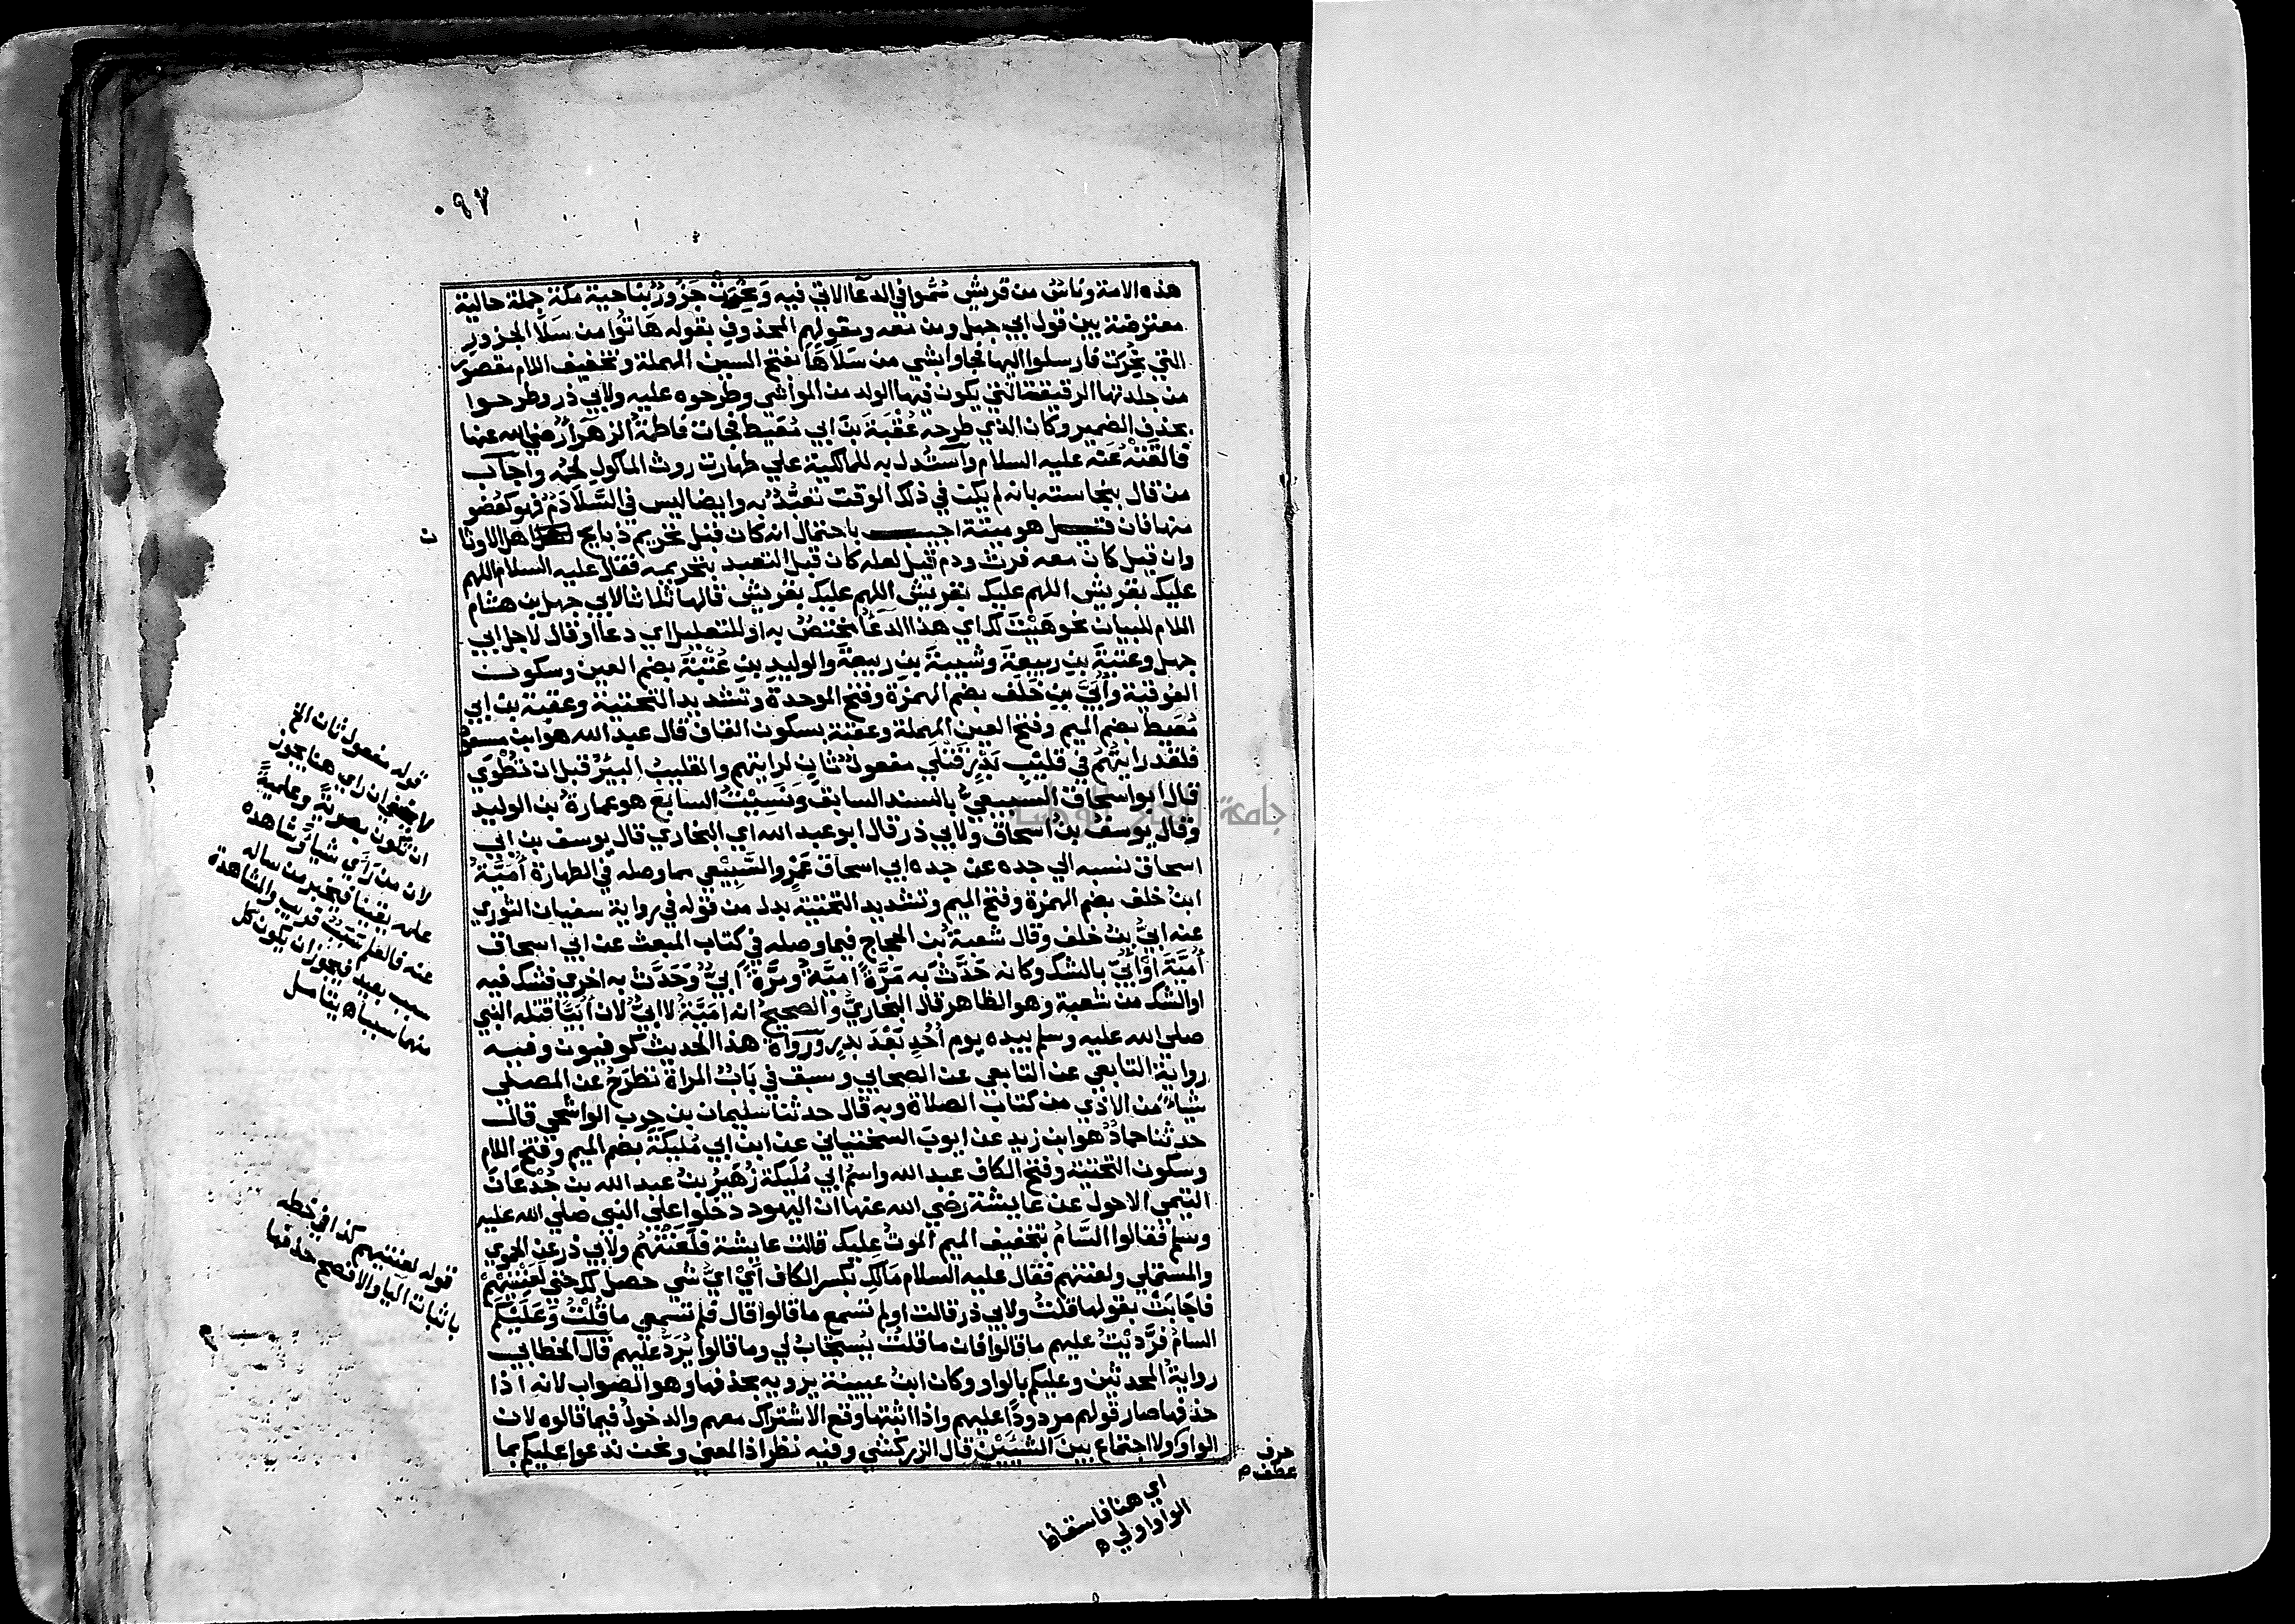 ٠٩٧
هذه الامة وناس من قريش سموا في الدعا الاتي فيه ونحرت جزور بناحية مكة جملة حالية
معترضة بين قول ابي جهل ومن معه ومقولهم المحذوف بقوله هاتوا من سلا الجزور
التي نحرت فارسلوا اليها فجاوا بشي من سلاها بفتح السين المهملة وتخفيف اللام مقصور
من جلدتها الرقيقة التي يكون فيها الولد من المواشي وطرحوه عليه ولابي ذر وطرحوا
بحذف الضمير وكان الذي طرحه عقبة بن ابي معيط فجات فاطمة الزهرا رضي الله عنها
فالقته عنه عليه السلام واستدل به للمالكية علي طهارت روث الماكول لحمه واجاب
من قال بنجاسته بانه لم يكن في ذلك الوقت تعبد به وايضا ليس في السلا دم فهو كعضو
منها فان قيل هو ميتة اجيب باحتمال انه كان قبل تحريم ذبايح اهل الاوثا
ن
وان قيل كان معه فرث ودم قيل لعله كان قبل التعبد بتحريمه فقال عليه السلام اللهم
عليك بقريش اللهم عليك بقريش اللهم عليك بقريش قالها ثلاثا لابي جهل بن هشام
اللام للبيان نحو هيت لك اي هذا الدعا مختص به او للتعليل اي دعا او قال لاجل ابي
جهل وعتبة بن ربيعة وشيبة بن ربيعة والوليد بن عتبة بضم العين وسكون
الفوقية وابي بن خلف بضم الهمزة وفتح الموحدة وتشديد التحتية وعقبة بن ابي
معيط بضم الميم وفتح العين المهملة وعقبة بسكون القاف قال عبد الله هو ابن مسعود
فلقد رايتهم في قليب بدر قتلي مفعول ثان لرايتهم والقليب البير قبل ان تطوي
قال ابو اسحاق السبيعي بالسند السابق ونسيت السابع هو عمارة بن الوليد
وقال يوسف بن اسحاق ولابي ذر قال ابو عبد الله اي البخاري قال يوسف بن ابي
اسحاق نسبه الي جده عن جده ابي اسحاق عمرو السبيعي مما وصله في الطهارة امية
ابن خلف بضم الهمزة وفتح الميم وتشديد التحتية بدل من قوله في رواية سفيان الثوري
عنه ابي بن خلف وقال شعبة بن الحجاج فيما وصله في كتاب المبعث عن ابي اسحاق
امية او ابي بالشك وكانه حدث به مرة امية ومرة ابي وحدث به اخري فشك فيه
او الشك من شعبة وهو الظاهر قال البخاري والصحيح انه امية لا ابي لان ابيا قتله النبي
صلي الله عليه وسلم بيده يوم احد بعد بدر ورواة هذا الحديث كوفيون وفيه
رواية التابعي عن التابعي عن الصحابي وسبق في باب المراة تطرح عن المصلي
شيا من الاذي من كتاب الصلاة وبه قال حدثنا سليمان بن حرب الواشحي قال
حدثنا حماد هو ابن زيد عن ايوب السختياني عن ابن ابي مليكة بضم الميم وفتح اللام
وسكون التحتية وفتح الكاف عبد الله واسم ابي مليكة زهير بن عبد الله بن جدعان
التيمي الاحول عن عايشة رضي الله عنها ان اليهود دخلوا علي النبي صلي الله عليه
وسلم فقالوا السام بتخفيف الميم الموت عليك قالت عايشة فلعنتهم ولابي ذر عن الحموي
والمستملي ولعنتهم فقال عليه السلام مالك بكسر الكاف اي اي شي حصل لك حتي لعنتيهم
فاجابت بقولها قلت ولابي ذر قالت اولم تسمع ما قالوا قال فلم تسمعي ما قلت وعليكم
السام فرديت عليهم ما قالوا فان ما قلت يستجاب لي وما قالوا يرد عليهم قال الخطابي
رواية المحدثين وعليكم بالواو وكان ابن عيينة يرويه بحذفها وهو الصواب لانه اذا
حذفها صار قولهم مردودا عليهم واذا اثبتها وقع الاشتراك معهم والدخول فيما قالوه لان
الواو والاجتماع بين الشيئين قال الزركشي وفيه نظر اذ المعني ونحن ندعوا عليكم بما
حرف
عطف م
اي هنا فاسقاط
الواو اولي ه
قوله مفعول ثان الخ
لا يخفي ان راي هنا يجوز
ان تكون بصرية وعلمية
لان من راي شيا وشاهده
علمه يقينا فيخبر من ساله
عنه فالعلم سبب قريب والمشاهدة
سبب بعيد فيجوز ان يكون كل
منهما سببا ه يتامل
قوله لعنتيهم كذا في خطه
باثبات اليا والافصح حذفها